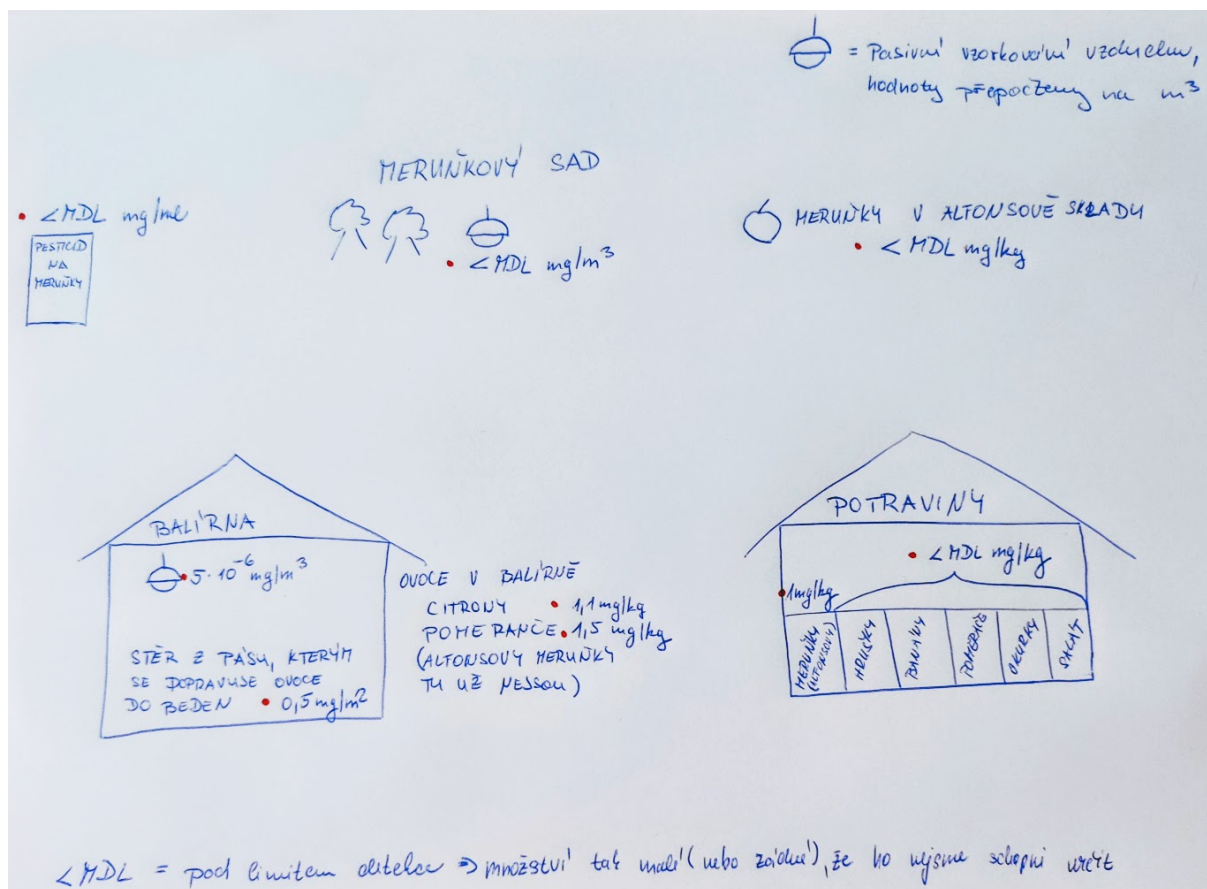 = Pasivní vzorkování vzduchu,
hodnoty přepočteny na m³
MERUŇKOVÝ SAD
< MDL mg/ml
PESTICID
NA
MERUŇKY
< MDL mg/m³
MERUŇKY V ALFONSOVĚ SKLADU
< MDL mg/kg
BALÍRNA
5·10⁻⁶ mg/m³
STĚR Z PÁSU, KTERÝM
SE DOPRAVUJE OVOCE
DO BEDEN 0,5 mg/m²
OVOCE V BALÍRNĚ
CITRONY 1,1 mg/kg
POMERANČE 1,5 mg/kg
(ALFONSOVY MERUŇKY
TU UŽ NEJSOU)
POTRAVINY
< MDL mg/kg
1 mg/kg
MERUŇKY
(ALFONSOVY)
HRUŠKY
BANÁNY
POMERANČE
OKURKY
SALÁT
< MDL = pod limitem detekce ⇒ množství tak malé (nebo žádné), že ho nejsme schopni určit